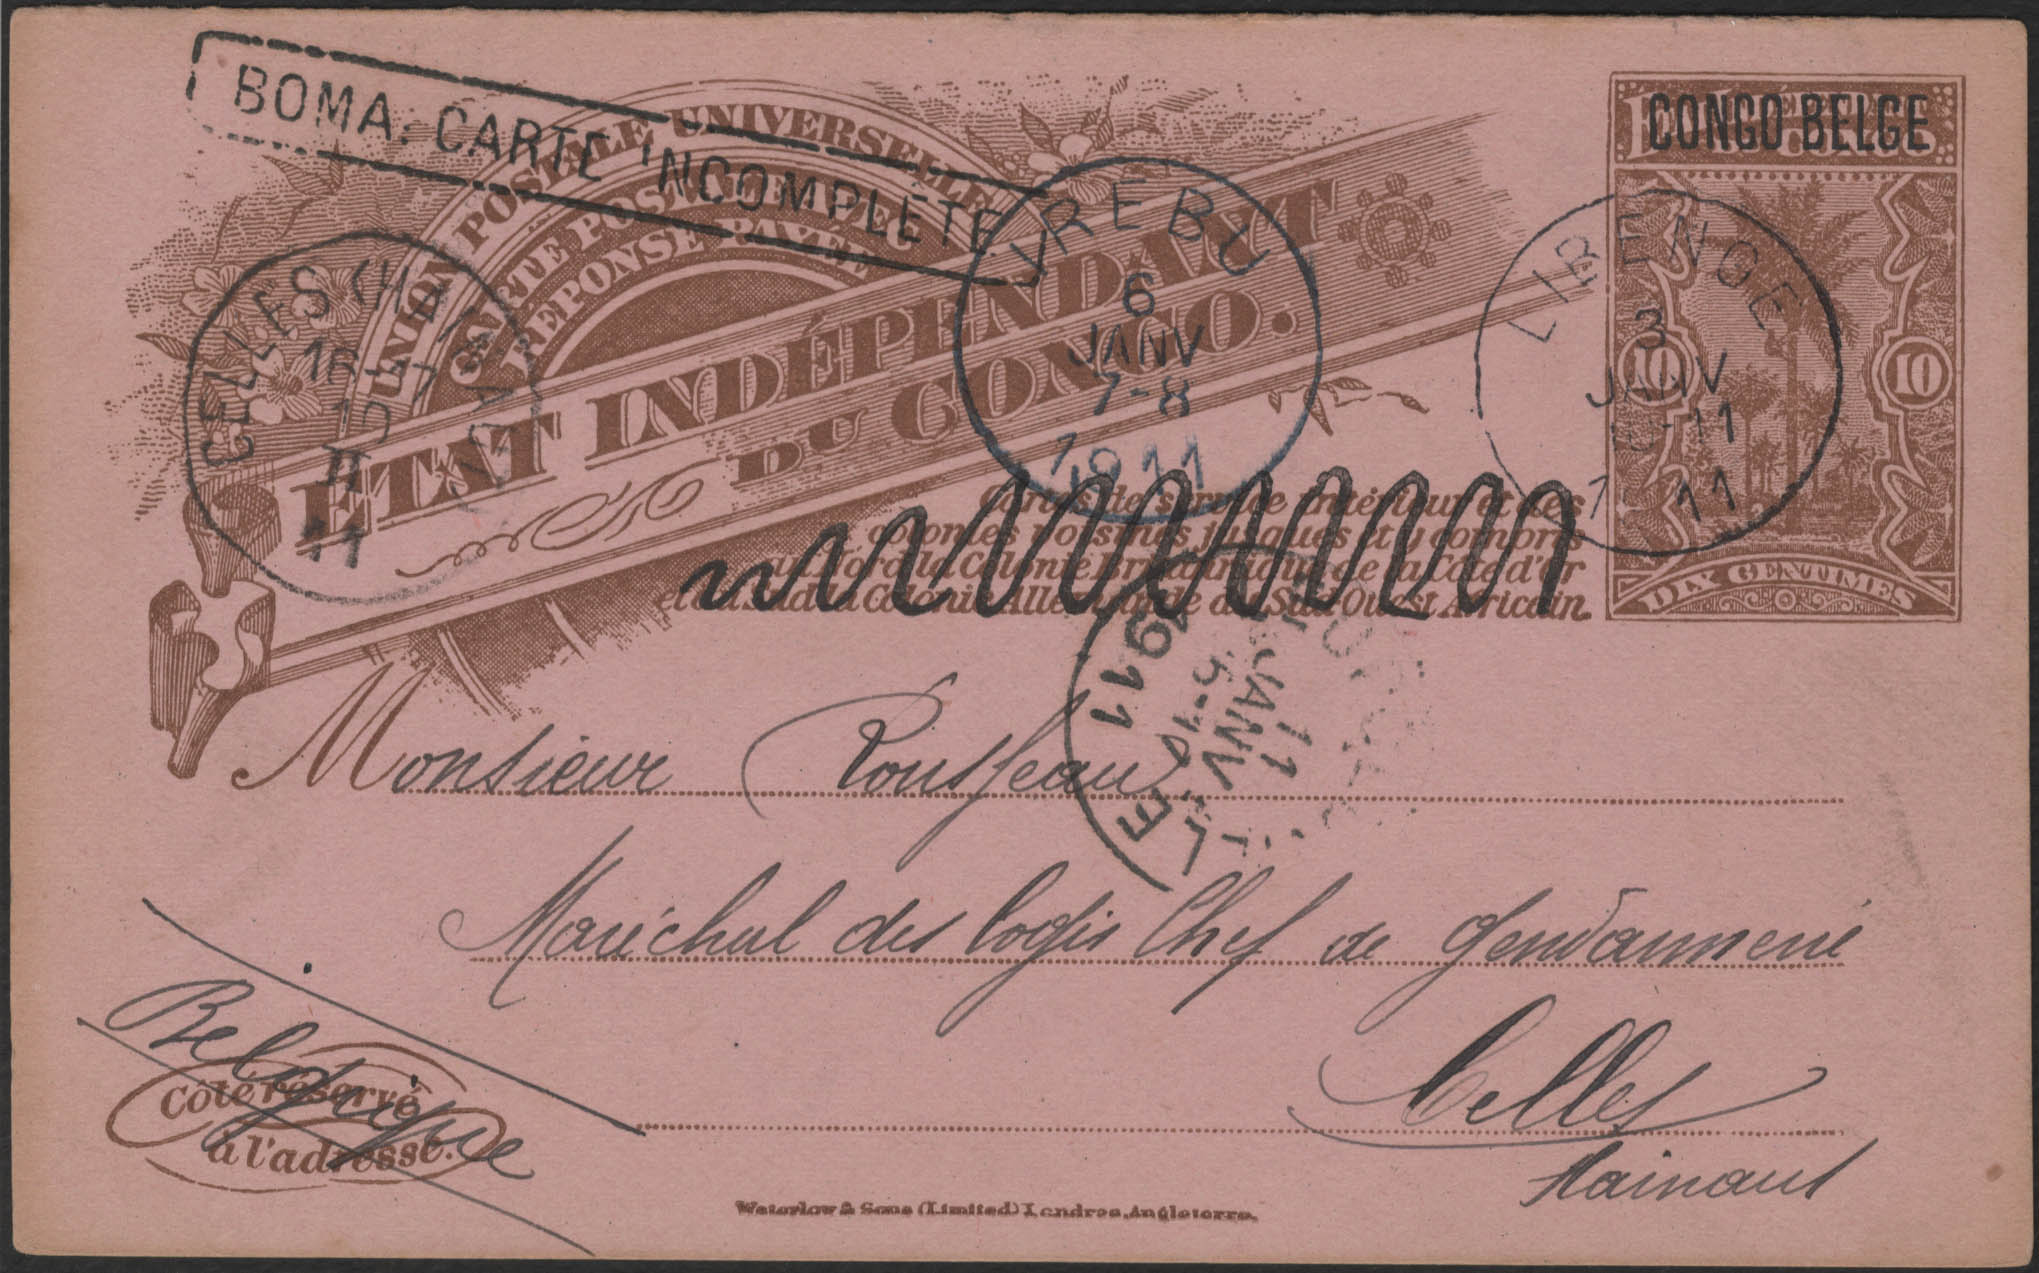 BOMA. CARTE INCOMPLÈTE
CONGO BELGE
UNION POSTALE UNIVERSELLE
CARTE POSTALE AVEC
RÉPONSE PAYÉE
ÉTAT INDÉPENDANT
DU CONGO.
10 10
DIX CENTIMES
CELLES (HAINAUT)
16-17
II
11
IREBU
6
JANV
7-8
1911
LIBENGE
3
JANV
10-11
11
Cartes de service intérieur et des
colonies voisines jusques et y compris
au Nord la Colonie Britannique de la Côte d'Or
et au Sud la Colonie Allemande du Sud-Ouest Africain.
LE
11
JANV
1911
Monsieur Rousseau
Maréchal des logis Chef de gendarmerie
Celles
Hainaut
Belgique
Côté réservé
à l'adresse.
Waterlow & Sons (Limited) Londres, Angleterre.